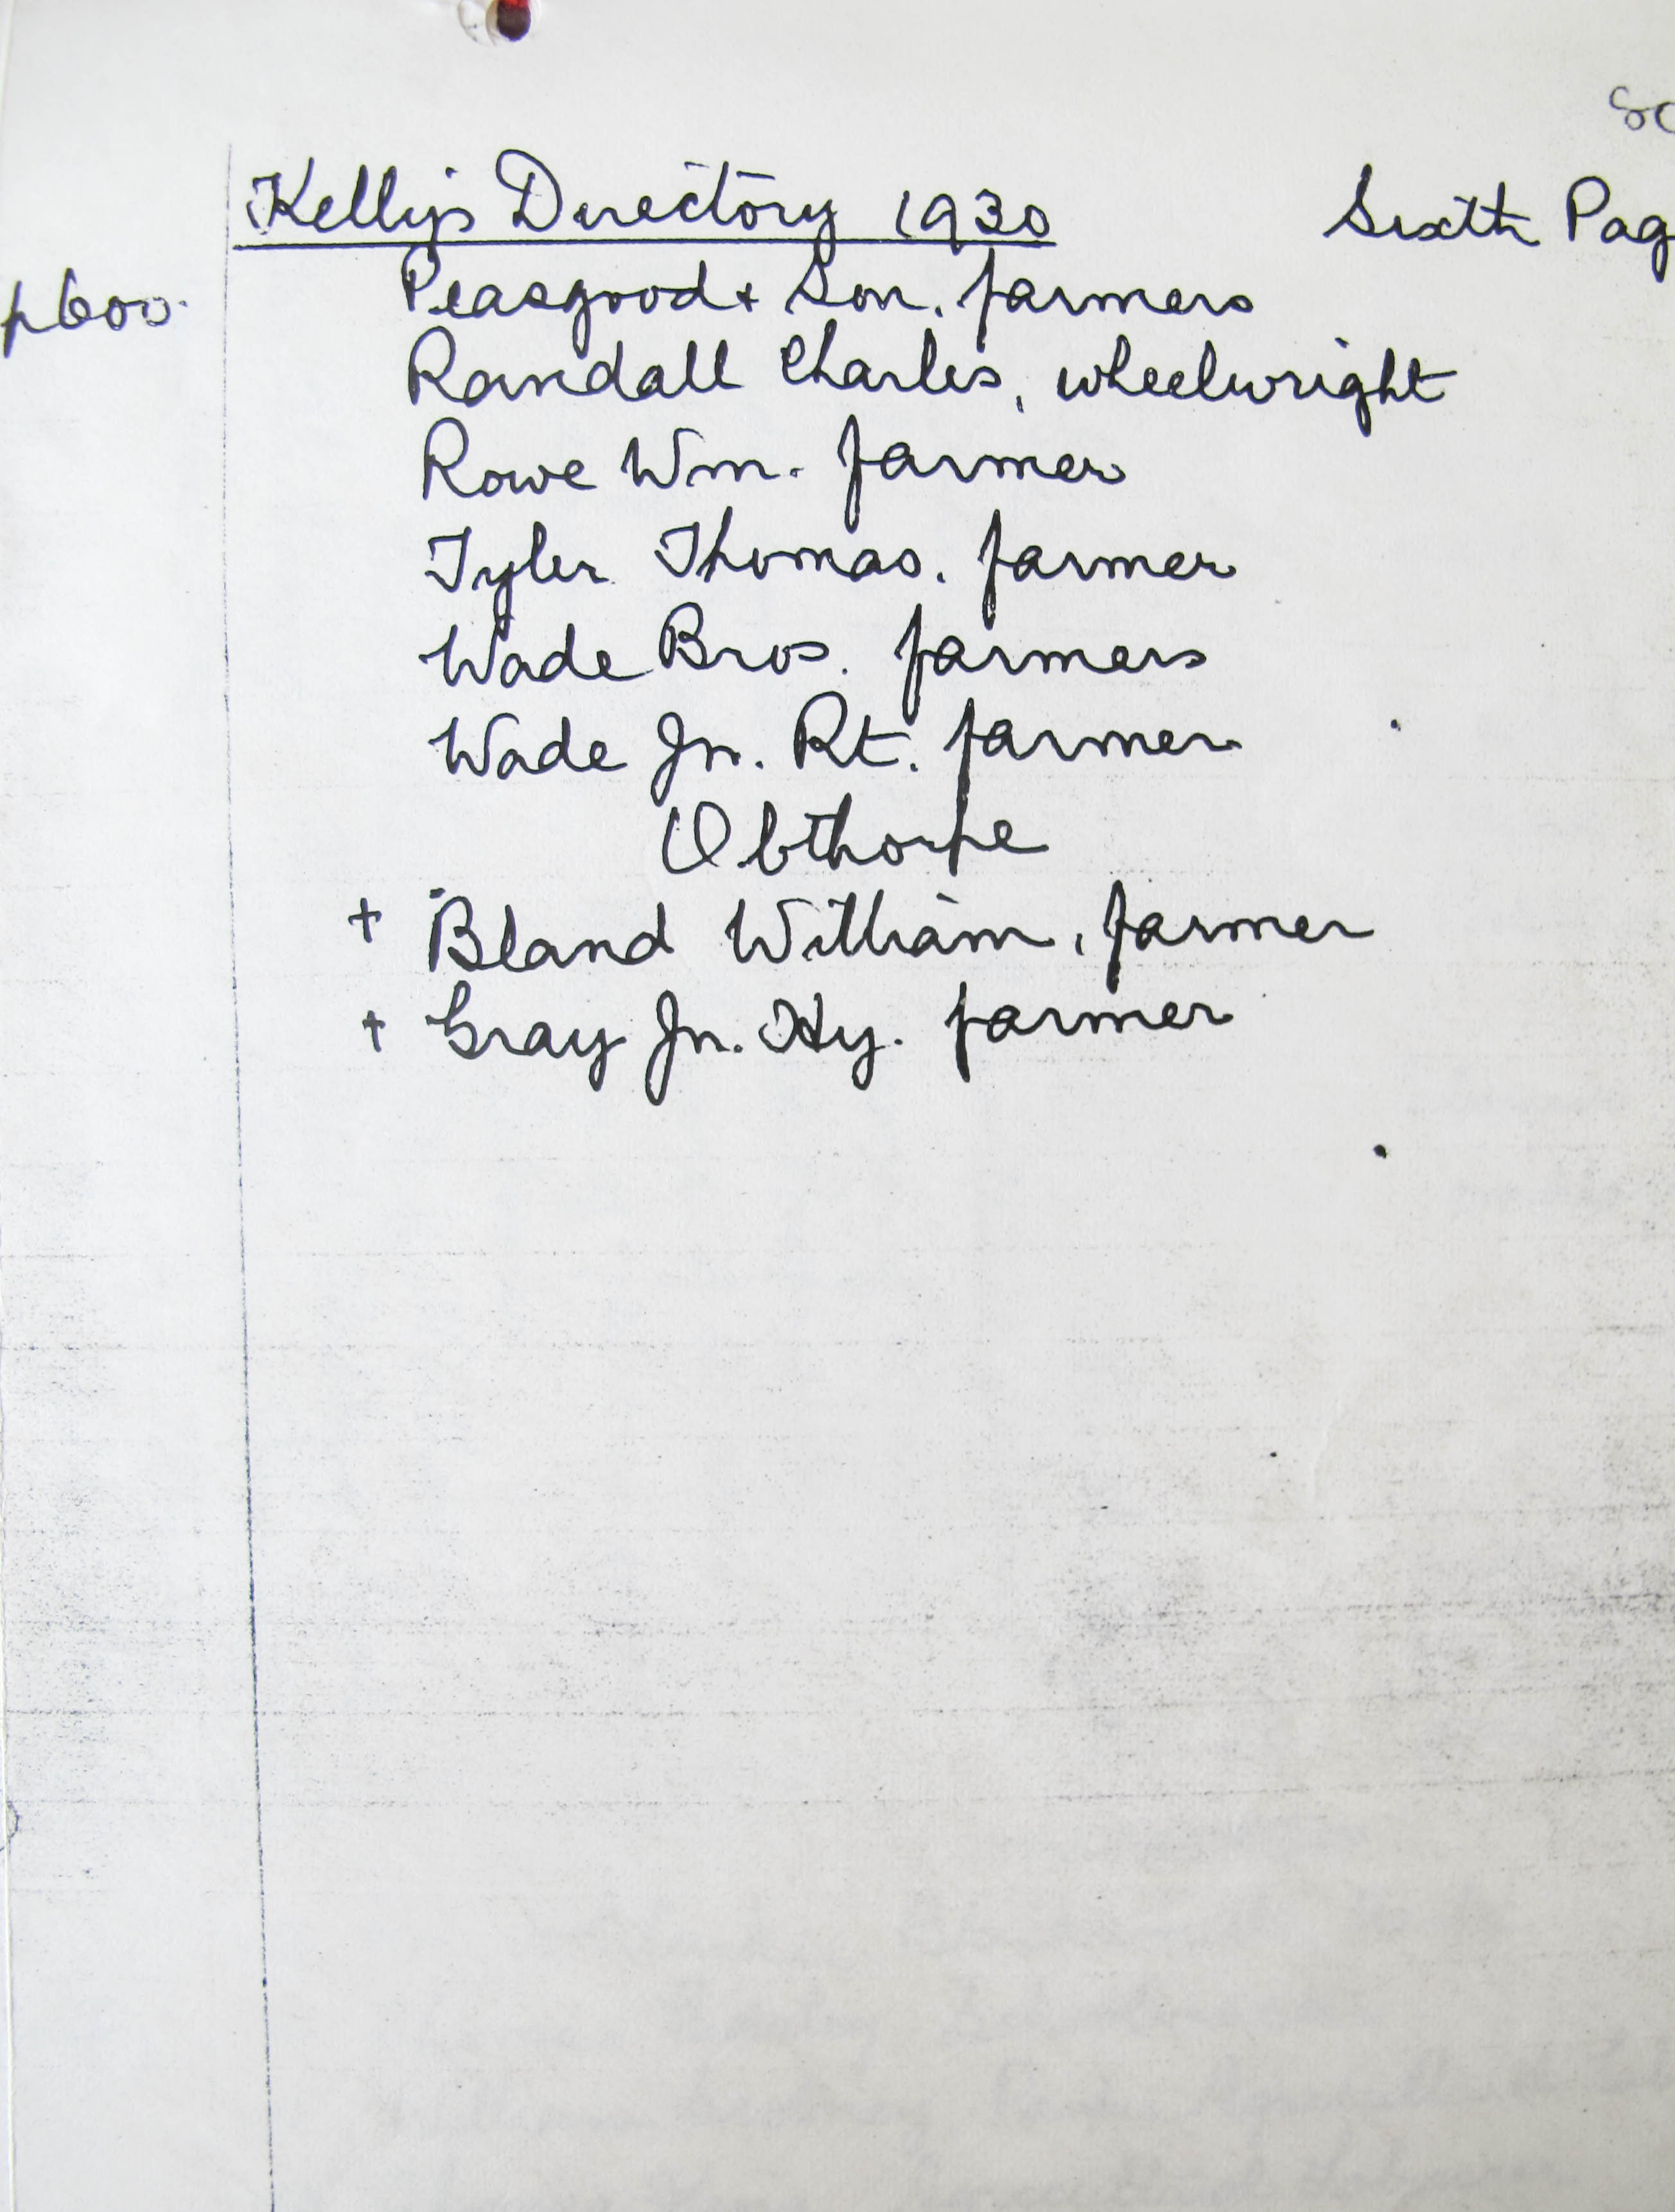 Kelly's Directory 1930 Sixth Pag
p600. Peasgood + Son. farmers
Randall Charles, wheelwright
Rowe Wm. farmer
Tyler Thomas. farmer
Wade Bros. farmers
Wade Jn. Rt. farmer
Obthorpe
+ Bland William, farmer
+ Gray Jn. Hy. farmer